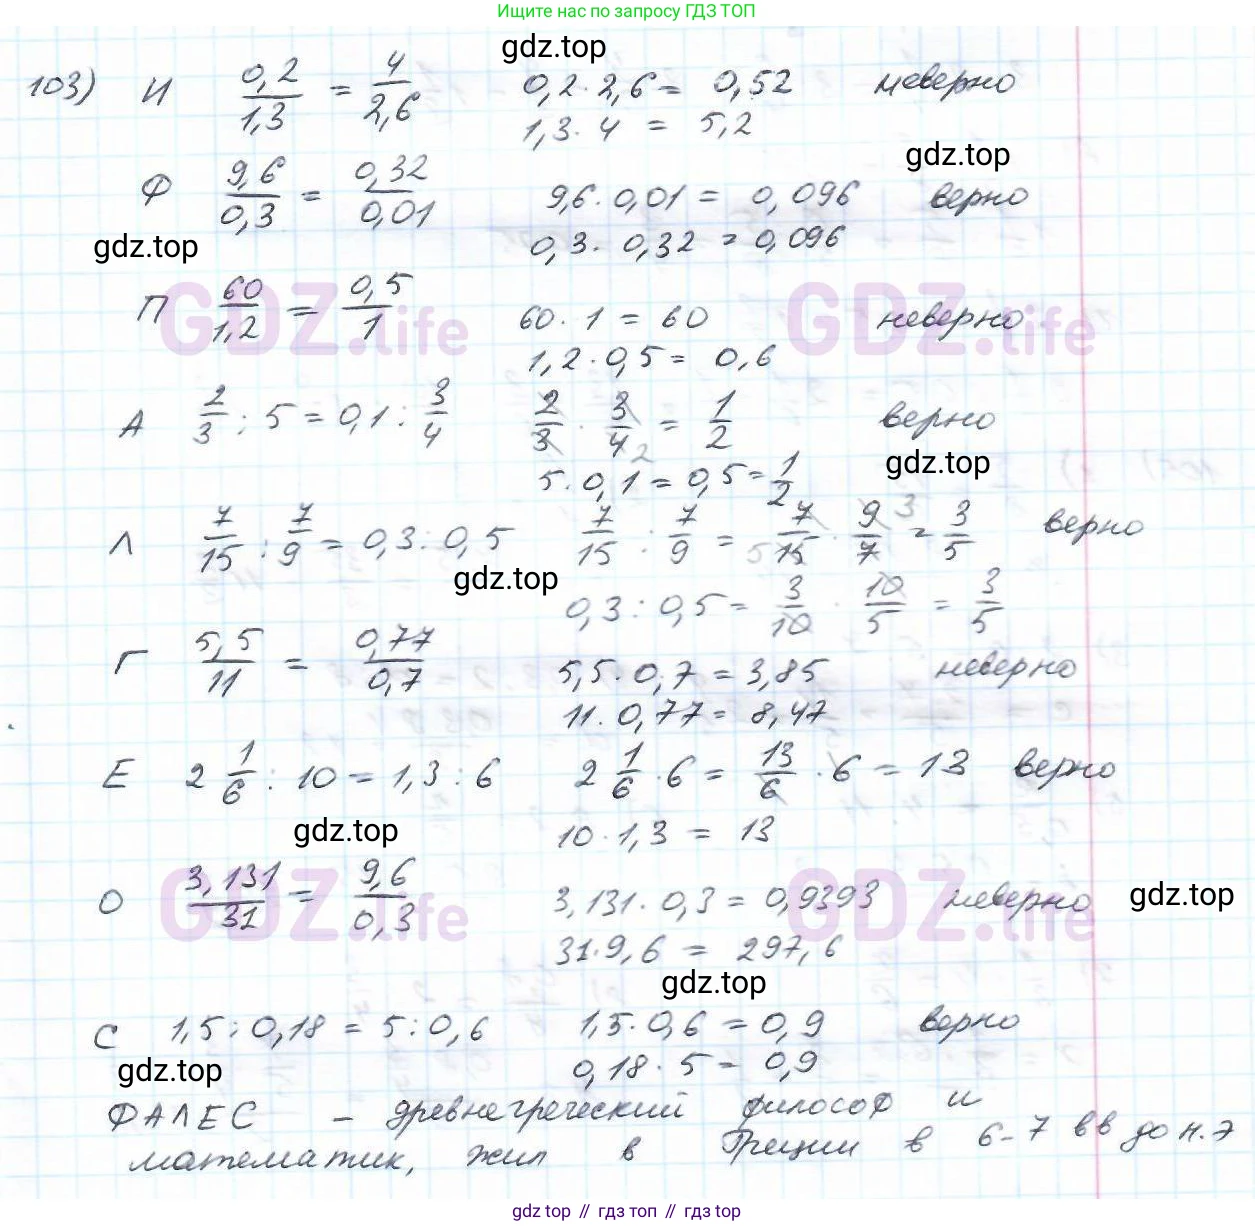 Ищите нас по запросу ГДЗ ТОП
gdz.top
103) И 0,2/1,3 = 4/2,6 0,2 · 2,6 = 0,52 неверно
1,3 · 4 = 5,2
gdz.top
Ф 9,6/0,3 = 0,32/0,01 9,6 · 0,01 = 0,096 верно
0,3 · 0,32 = 0,096
gdz.top
П 60/1,2 = 0,5/1 60 · 1 = 60 неверно
1,2 · 0,5 = 0,6
GDZ.life GDZ.life
А 2/3 : 5 = 0,1 : 3/4 2/3 · 3/4 2 = 1/2 верно
gdz.top
5 · 0,1 = 0,5 = 1/2
Л 7/15 : 7/9 = 0,3 : 0,5 7/15 : 7/9 = 7/15 5 · 9/7 3 = 3/5 верно
gdz.top
0,3 : 0,5 = 3/10 · 10/5 = 3/5
Г 5,5/11 = 0,77/0,7 5,5 · 0,7 = 3,85 неверно
11 · 0,77 = 8,47
Е 2 1/6 : 10 = 1,3 : 6 2 1/6 · 6 = 13/6 · 6 = 13 верно
gdz.top
10 · 1,3 = 13
О 3,131/31 = 9,6/0,3 3,131 · 0,3 = 0,9393 неверно
gdz.top
GDZ.life GDZ.life
31 · 9,6 = 297,6
gdz.top
С 1,5 : 0,18 = 5 : 0,6 1,5 · 0,6 = 0,9 верно
0,18 · 5 = 0,9
gdz.top
ФАЛЕС – древнегреческий философ и
математик, жил в Греции в 6-7 вв до н.э
gdz top // гдз топ // gdz top